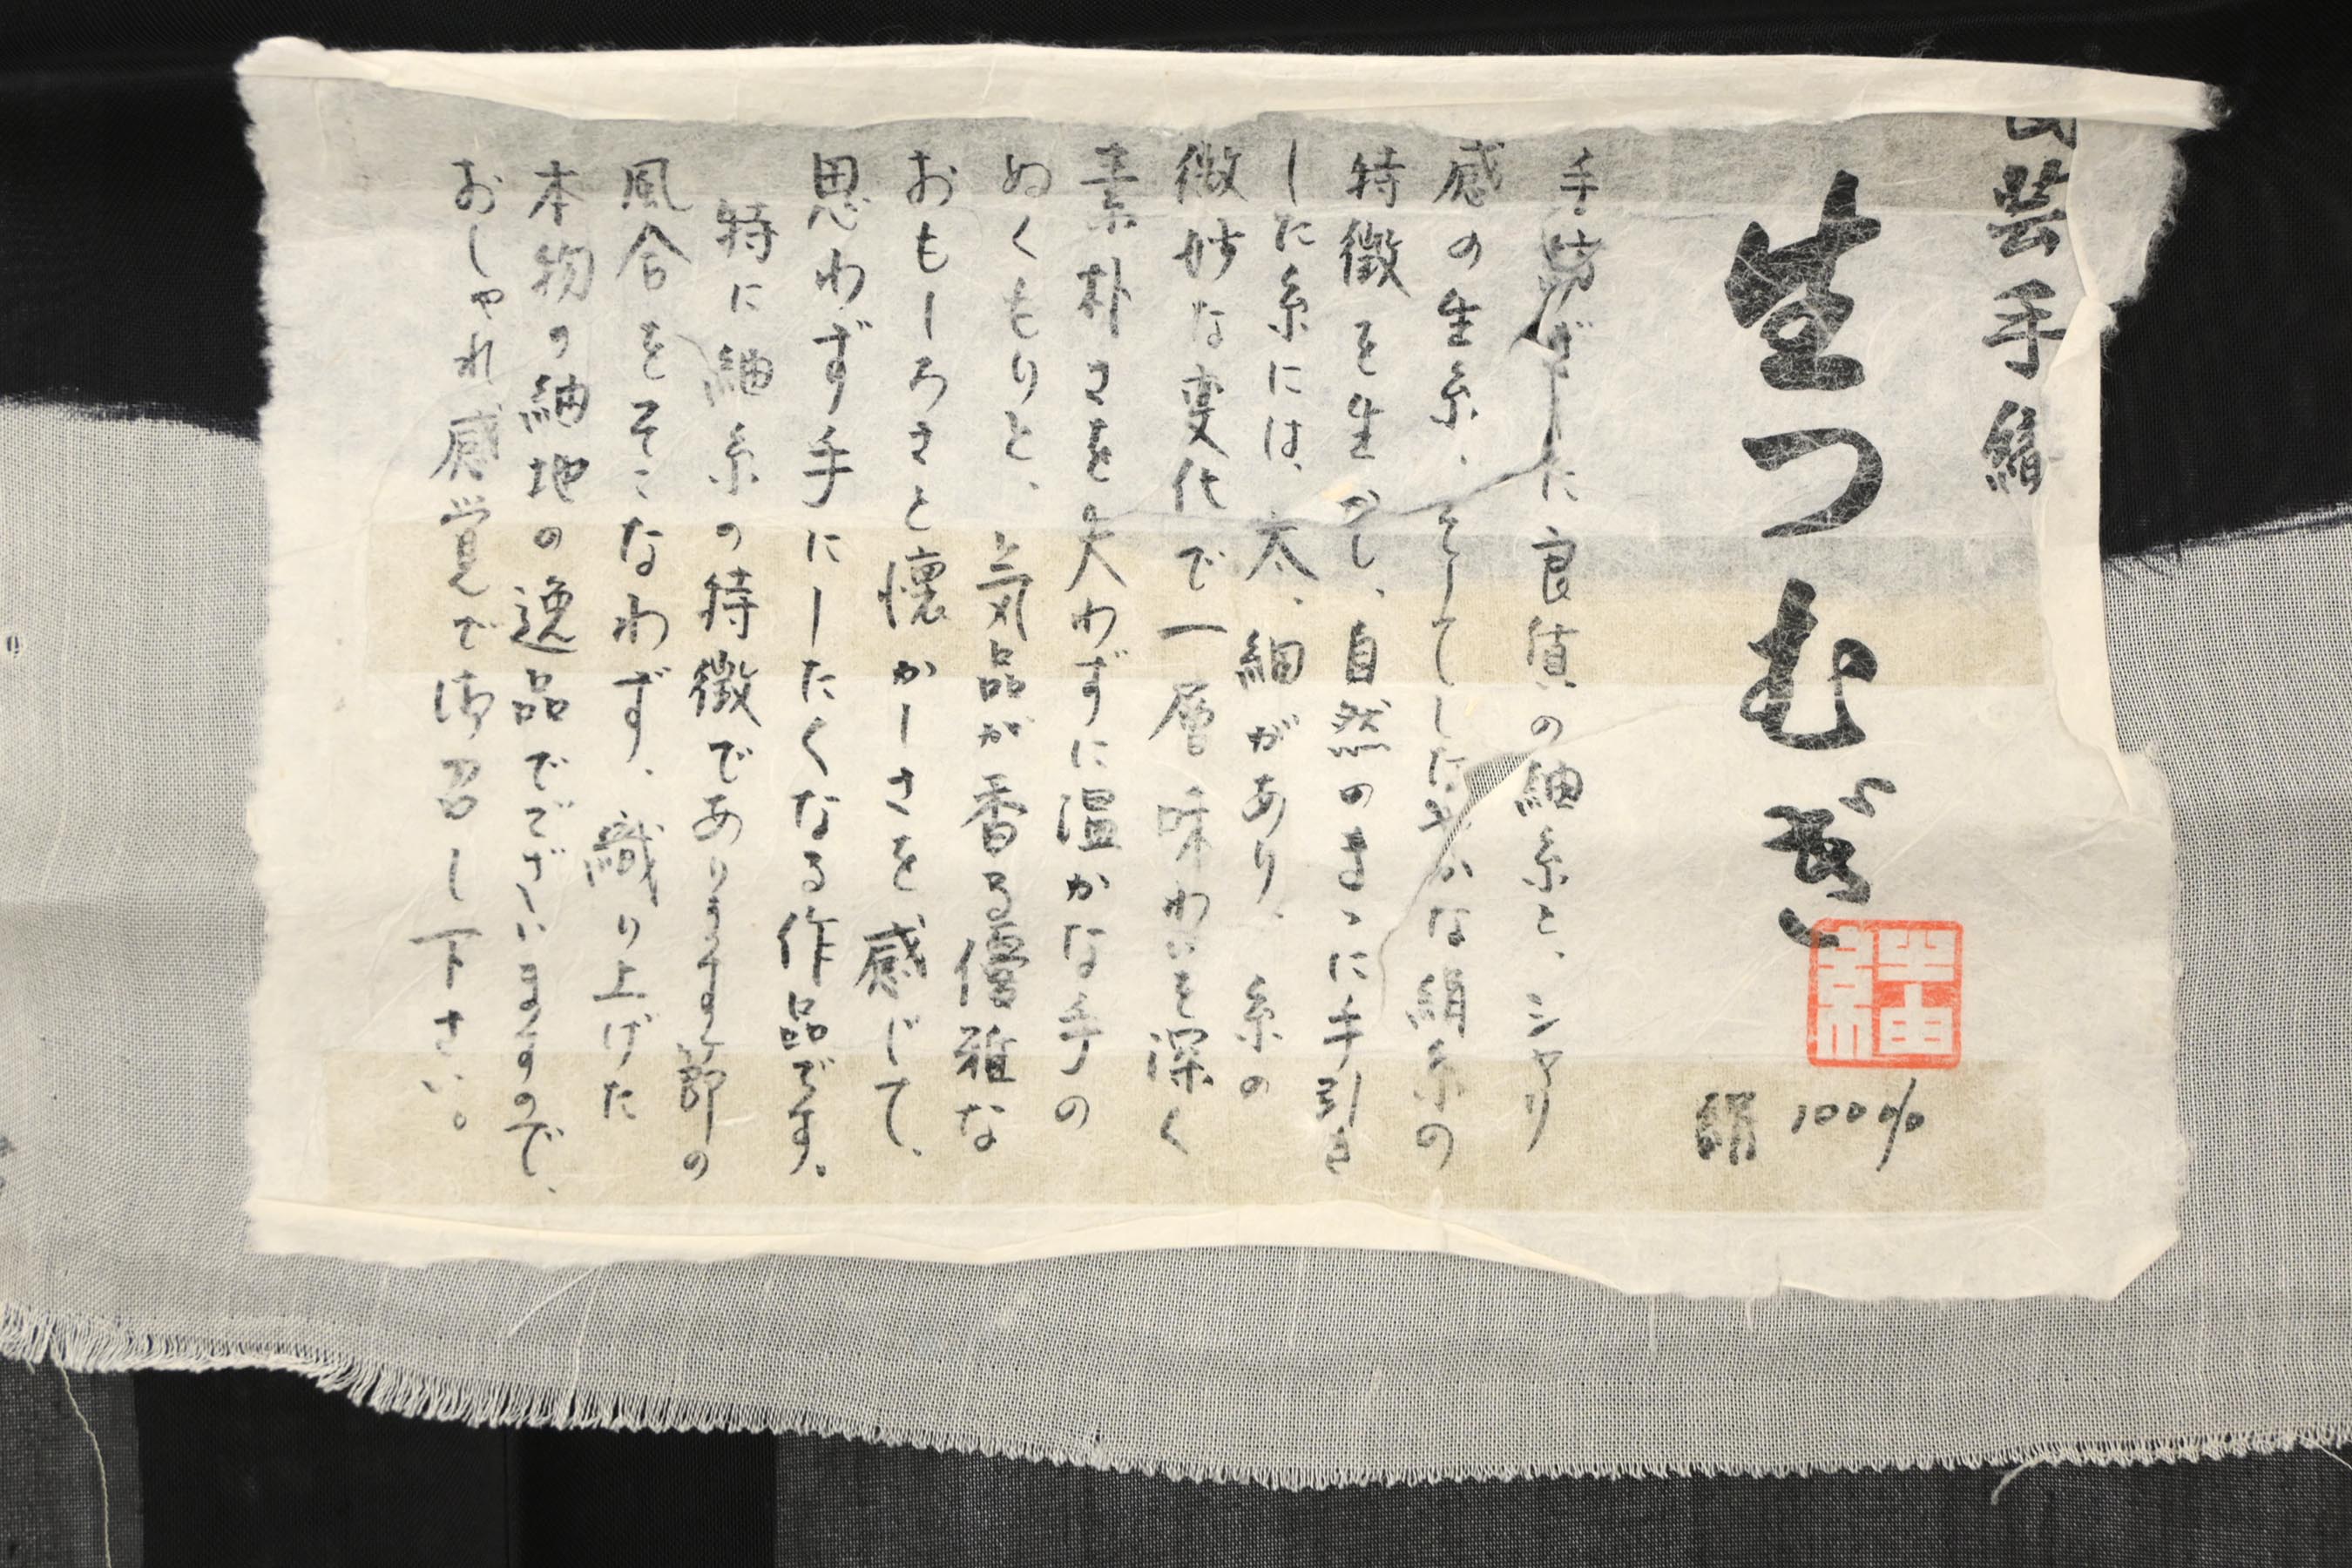 芸手縞
生つむぎ
生紬
絹100%
手紡ぎした良質の紬糸と、シャリ
感の生糸、そしてしなやかな絹糸の
特徴を生かし、自然のまゝに手引き
した糸には、太、細があり、糸の
微妙な変化で一層味わいを深く
素朴さを失わずに温かな手の
ぬくもりと、気品が香る優雅な
おもしろさと懐かしさを感じて、
思わず手にしたくなる作品です。
特に紬糸の特徴であります節の
風合をそこなわず、織り上げた
本物の紬地の逸品でございますので、
おしゃれ感覚で御召し下さい。